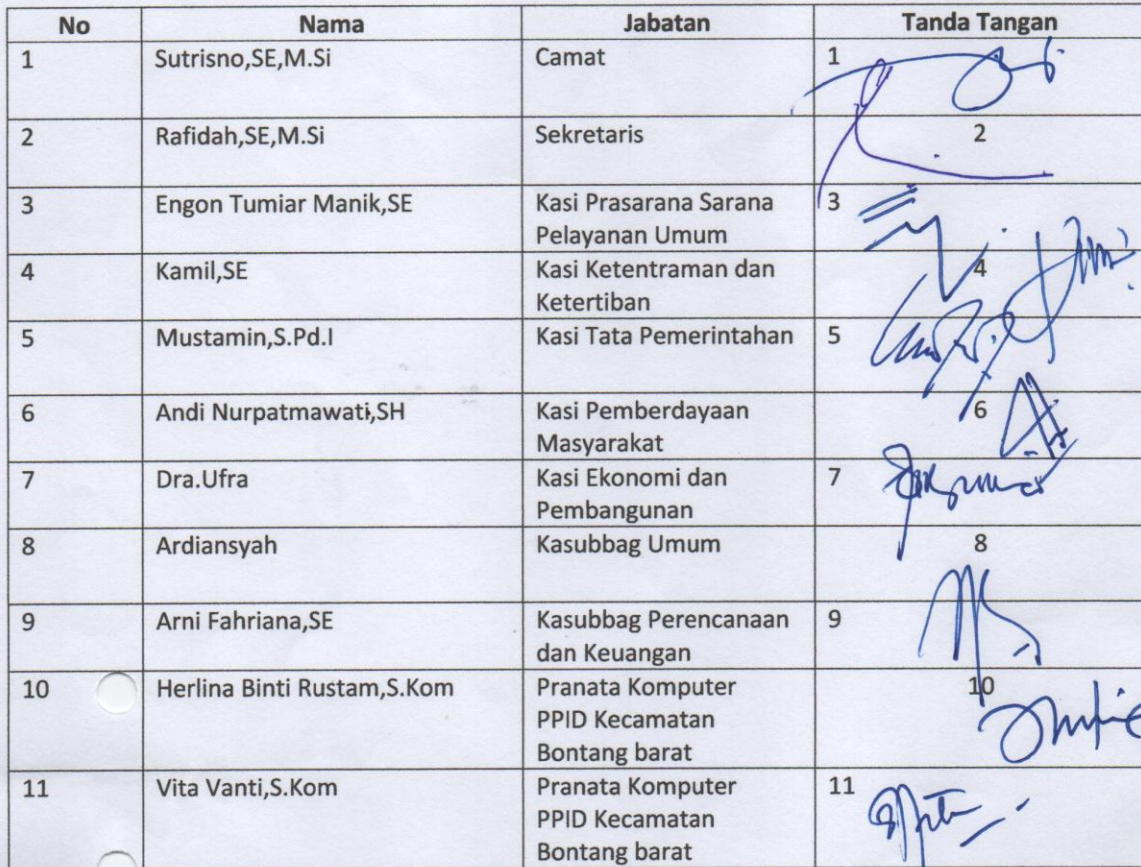 No Nama Jabatan Tanda Tangan
1 Sutrisno,SE,M.Si Camat 1
2 Rafidah,SE,M.Si Sekretaris 2
3 Engon Tumiar Manik,SE Kasi Prasarana Sarana 3
Pelayanan Umum
4 Kamil,SE Kasi Ketentraman dan 4
Ketertiban
5 Mustamin,S.Pd.I Kasi Tata Pemerintahan 5
6 Andi Nurpatmawati,SH Kasi Pemberdayaan 6
Masyarakat
7 Dra.Ufra Kasi Ekonomi dan 7
Pembangunan
8 Ardiansyah Kasubbag Umum 8
9 Arni Fahriana,SE Kasubbag Perencanaan 9
dan Keuangan
10 Herlina Binti Rustam,S.Kom Pranata Komputer 10
PPID Kecamatan
Bontang barat
11 Vita Vanti,S.Kom Pranata Komputer 11
PPID Kecamatan
Bontang barat